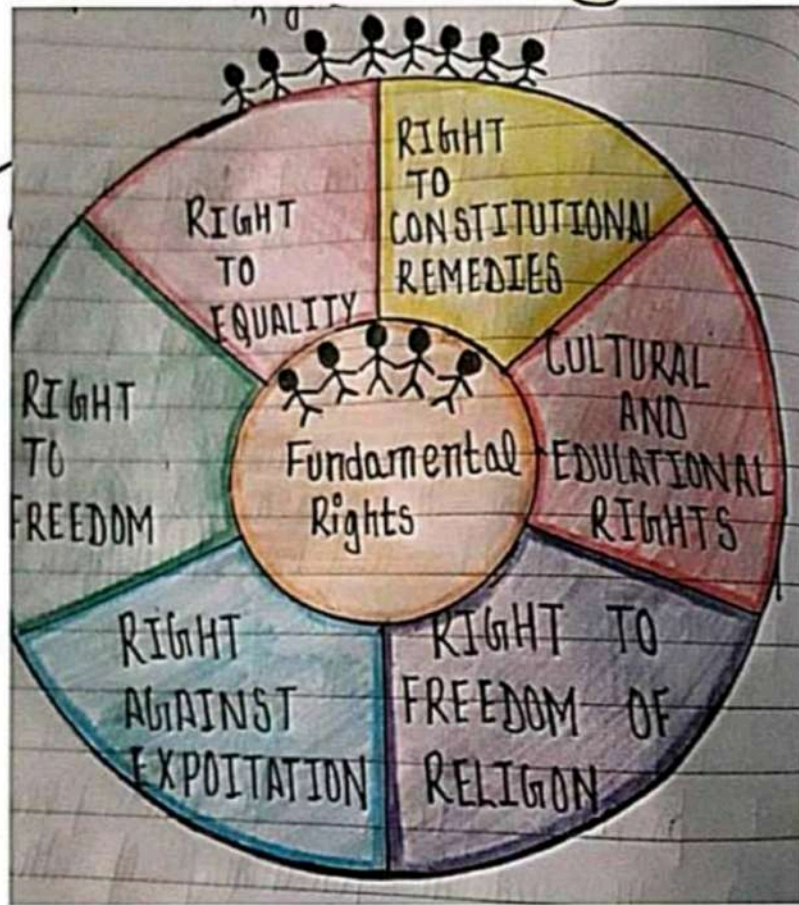 RIGHT
TO
EQUALITY
RIGHT
TO
CONSTITUTIONAL
REMEDIES
CULTURAL
AND
EDULATIONAL
RIGHTS
RIGHT TO
FREEDOM OF
RELIGON
RIGHT
AGAINST
EXPOITATION
RIGHT
TO
FREEDOM
Fundamental
Rights